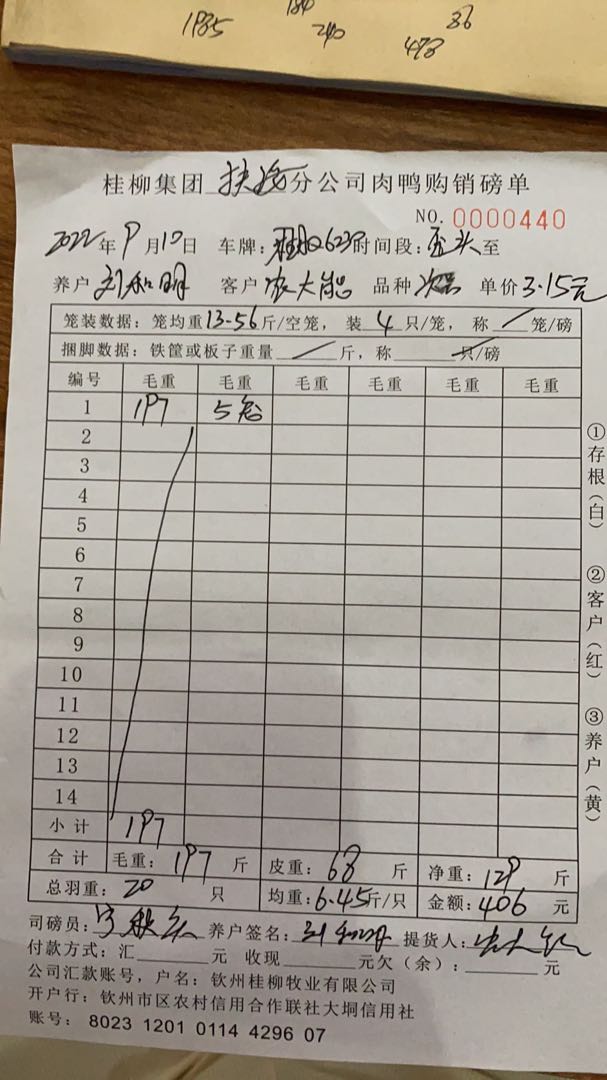 1985
180
240
36
478
桂柳集团 扶绥 分公司肉鸭购销磅单
NO. 0000440
2022年9月10日 车牌: 时间段: 至
养户 刘和明 客户 农大 品种 次品 单价 3.15元
笼装数据: 笼均重13.56斤/空笼, 装 4 只/笼, 称 / 笼/磅
捆脚数据: 铁筐或板子重量 / 斤, 称 / 只/磅
编号 毛重 毛重 毛重 毛重 毛重 毛重
1 197 5笼
2
3
4
5
6
7
8
9
10
11
12
13
14
小计 197
合计 毛重: 197 斤 皮重: 68 斤 净重: 129 斤
总羽重: 20 只 均重: 6.45斤/只 金额: 406 元
司磅员: 养户签名: 刘和明 提货人:
付款方式: 汇 元 收现 元欠(余): 元
公司汇款账号, 户名: 钦州桂柳牧业有限公司
开户行: 钦州市区农村信用合作联社大垌信用社
账号: 8023 1201 0114 4296 07
①存根(白)
②客户(红)
③养户(黄)